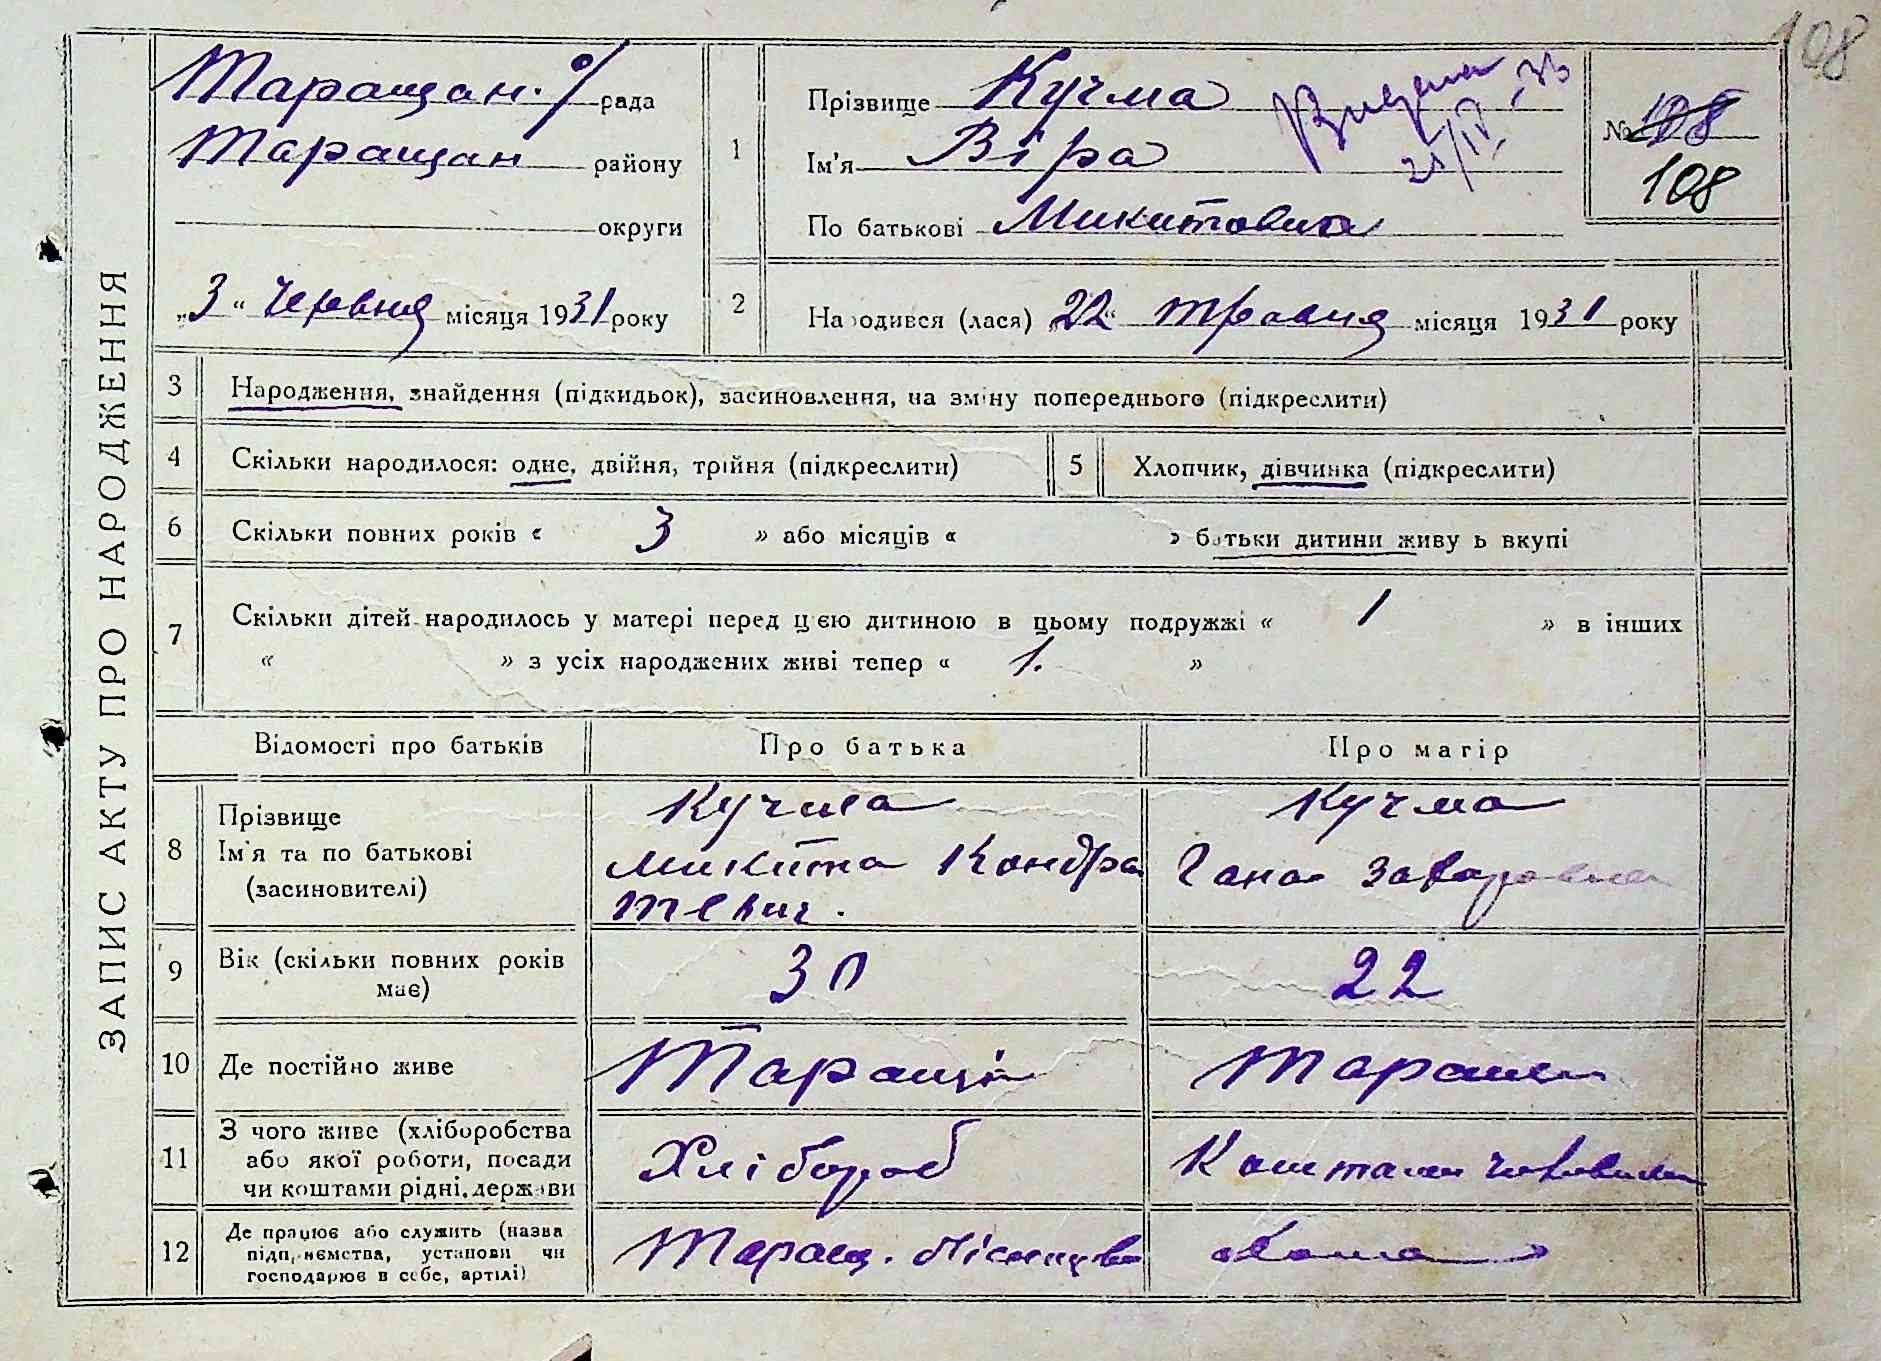 108
ЗАПИС АКТУ ПРО НАРОДЖЕННЯ
Таращан. рада
Таращан району
округи
„3“ Червня місяця 1931 року
1 Прізвище Кучма
Ім'я Віра
По батькові Микитовна
Видана
№ 108
108
2 Народився (лася) „22“ Травня місяця 1931 року
3 Народження, знайдення (підкидьок), засиновлення, на зміну попереднього (підкреслити)
4 Скільки народилося: одне, двійня, трійня (підкреслити) 5 Хлопчик, дівчинка (підкреслити)
6 Скільки повних років « 3 » або місяців « » батьки дитини живуть вкупі
7 Скільки дітей народилось у матері перед цією дитиною в цьому подружжі « 1 » в інших
« » з усіх народжених живі тепер « 1. »
Відомості про батьків Про батька Про матір
8 Прізвище Кучма Кучма
Ім'я та по батькові Микита Кондра Гана
(засиновителі) тевич.
9 Вік (скільки повних років має) 30 22
10 Де постійно живе Таращі Тараще
11 З чого живе (хліборобства
або якої роботи, посади Хлібороб Коштами чоловіка
чи коштами рідні, держави
12 Де працює або служить (назва
підприємства, установи чи Таращ.
господарює в себе, артілі)